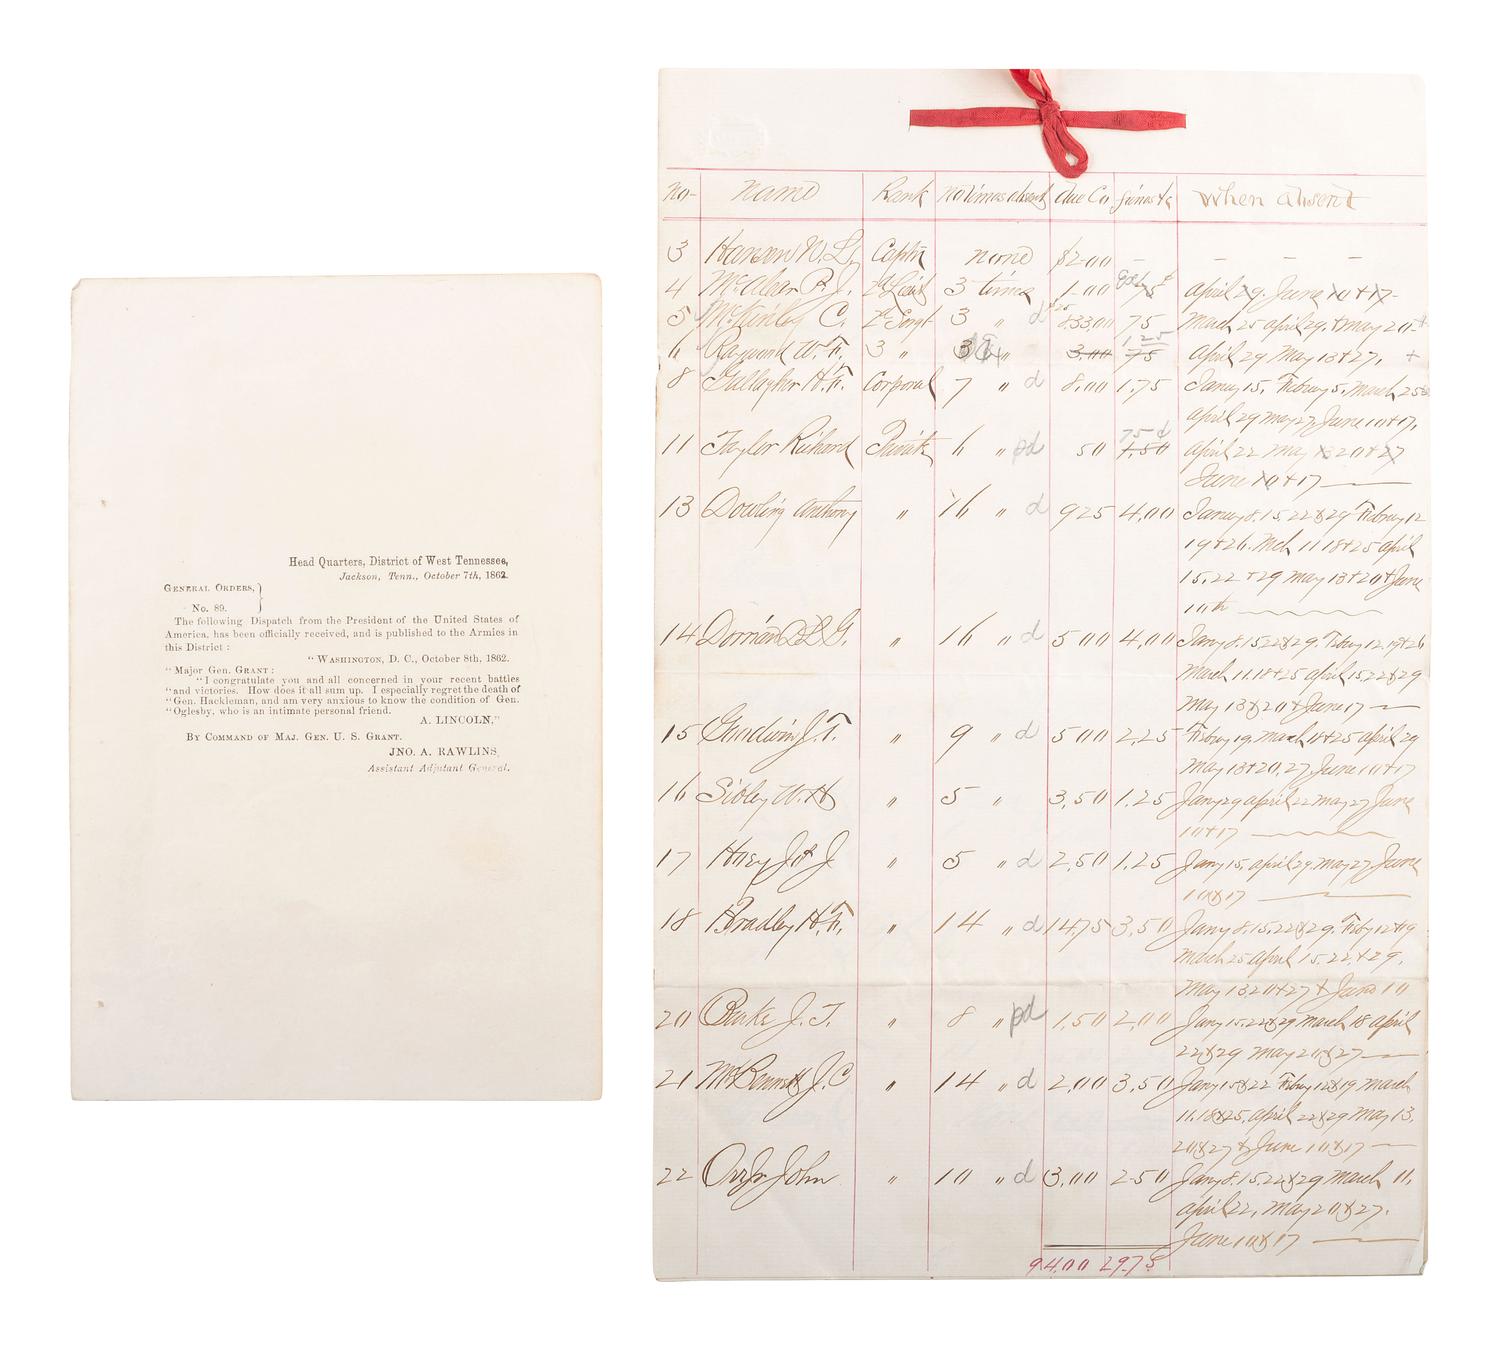 Head Quarters, District of West Tennessee,
Jackson, Tenn., October 7th, 1862.
GENERAL ORDERS,}
No. 89.
The following Dispatch from the President of the United States of
America, has been officially received, and is published to the Armies in
this District :
"WASHINGTON, D. C., October 8th, 1862.
"Major Gen. GRANT :
"I congratulate you and all concerned in your recent battles
"and victories. How does it all sum up. I especially regret the death of
"Gen. Hackleman, and am very anxious to know the condition of Gen.
"Oglesby, who is an intimate personal friend.
A. LINCOLN,"
BY COMMAND OF MAJ. GEN. U. S. GRANT.
JNO. A. RAWLINS,
Assistant Adjutant General.
no- name Rank no times absent due Co fines &c When absent
3 Hanson N. L. Captn none $2.00 – – – –
4 McAleer P. J. 2d Lieut 3 times 1.00 75 april 29. June 10 + 17-
5 McKinley C. 2d Sergt 3 " d 8.33.00 75 March 25 april 29. + may 20.
6 Raymond W. F. 3 " 3 " 3.00 1.25 75 april 29 May 13 + 27. +
8 Gallagher H. F. Corporal 7 " d 8.00 1.75 Jany 15, Febuy 5, march 25
april 29 may 27, June 10 + 17,
11 Taylor Richard Private 6 " pd 50 75 1.50 april 22 may 13 20 + 27
June 10 + 17
13 Dowling anthony " 16 " d 925 4.00 Jany 8. 15. 22 & 29 Febuy 12
19 + 26. Mch 11 18 + 25 april
15. 22 + 29 may 13 + 20 + June
10th
14 D. G. " 16 " d 500 4.00 Jany 8. 15 22 & 29. Febuy 12. 19 + 26
March 11. 18 + 25 april 15. 22 & 29
may 13 & 20 & June 17
15 Goodwin J. F. " 9 " d 500 2.25 Febuy 19, march 11 + 25 april 29
may 13 + 20, 27, June 10 + 17
16 Sibley W. H " 5 " 3,50 1.25 Jany 29 april 22 may 27 June
10 + 17
17 J. " 5 " d 2,50 1.25 Jany 15. april 29. may 27 June
10 & 17
18 Bradley H. F. " 14 " d 1475 3.50 Jany 8. 15. 22 & 29. Feby 12 + 19
march 25 april 15. 22. + 29.
May 13. 20 + 27 + June 10
20 Burke J. T. " 8 " pd 1,50 2.00 Jany 15. 22 & 29 march 18 april
22 & 29 may 20 & 27
21 J. C " 14 " d 2,00 3,50 Jany 15 & 22 Febuy 12 & 19 march
11. 18 & 25, april 22 & 29 may 13.
20 & 27 & June 10 & 17
22 Orr Jr John " 10 " d 3,00 250 Jany 8. 15. 22 & 29 march 11,
april 22, may 20 & 27.
June 10 & 17
94.00 29.75